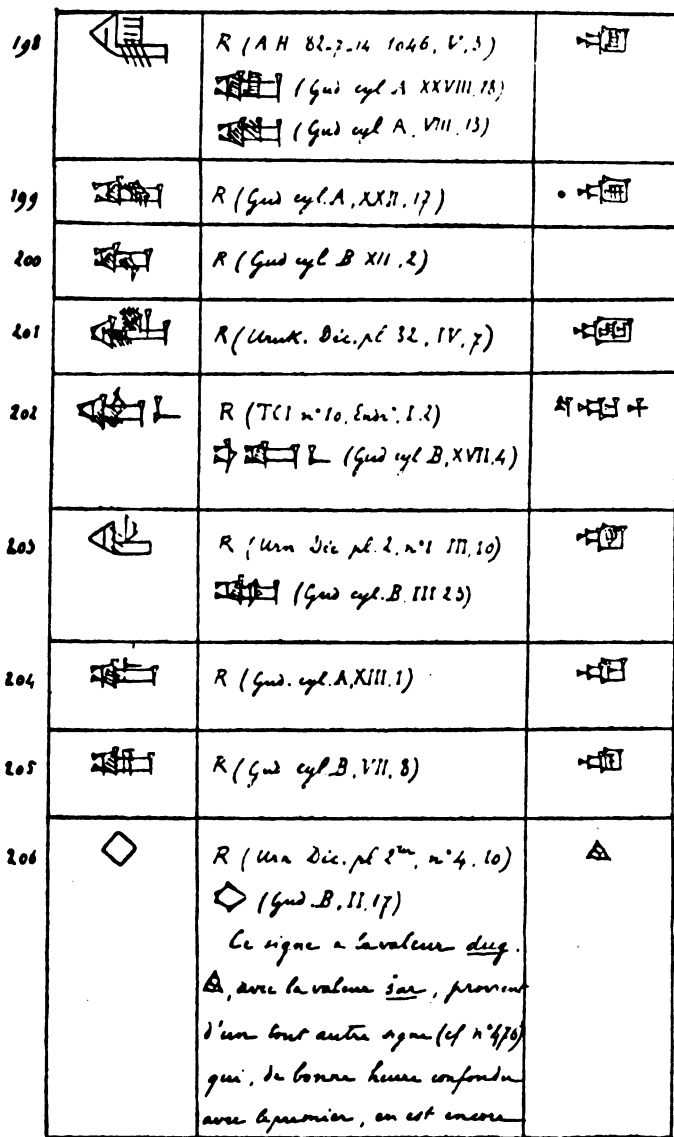 198 R (AH 82-7-14 1046, V, 3)
(Gud cyl A XXVIII.18)
(Gud cyl A, VIII.13)
199 R (Gud cyl. A, XXII, 17)
200 R (Gud cyl B XII, 2)
201 R (Uruk. Déc. pl 32, IV, 7)
202 R (TCI n°10, I.2)
(Gud cyl B, XVII.4)
203 R (Urn Déc pl. 2, n°1 III, 10)
(Gud cyl. B. III 23)
204 R (Gud. cyl. A, XIII.1)
205 R (Gud cyl. B, VII, 8)
206 R (Urn Déc. pl 2ter, n°4, 10)
(Gud. B, II.17)
Ce signe a la valeur dug.
, avec la valeur šar, provient
d'un tout autre signe (cf n°476)
qui, de bonne heure confondu
avec le premier, en est encore